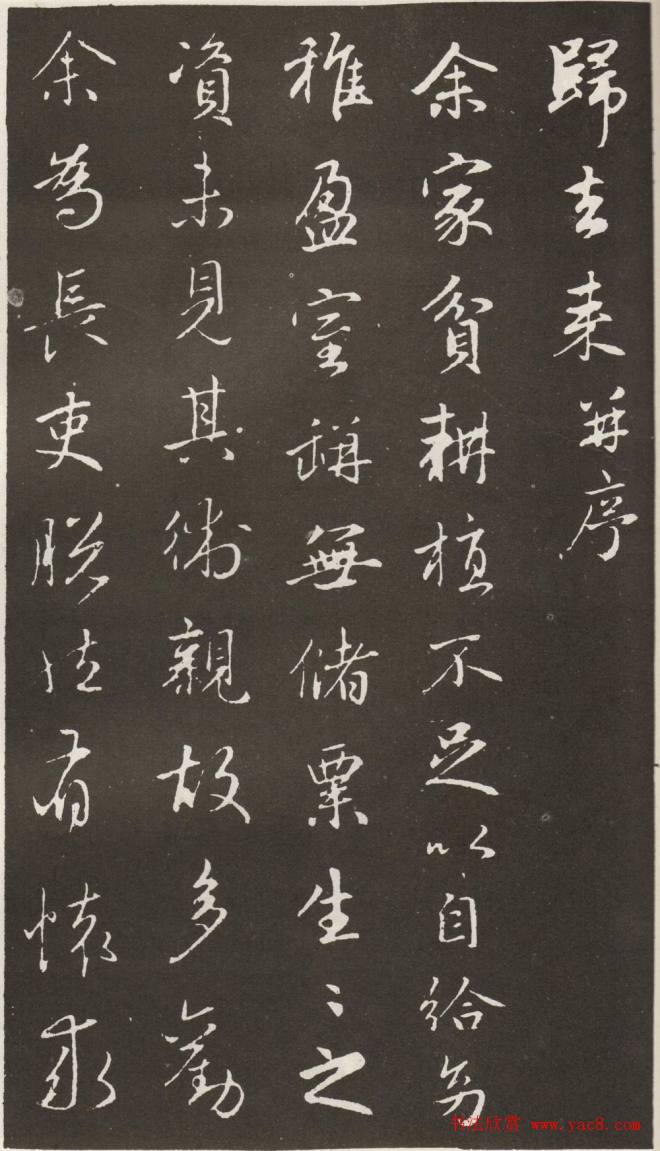 歸去来并序
余家貧耕植不足以自給幼
稚盈室缾無儲粟生〻之
資未見其術親故多勸
余為長吏脱然有懷求
书法欣赏 www.yac8.com